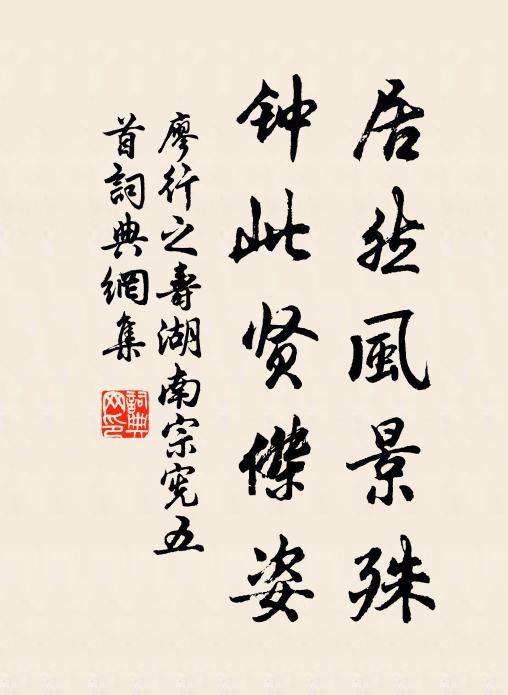 居然風景殊
钟此贤傑姿
廖行之壽湖南宗宪五
首詞典網集
詞典
网印